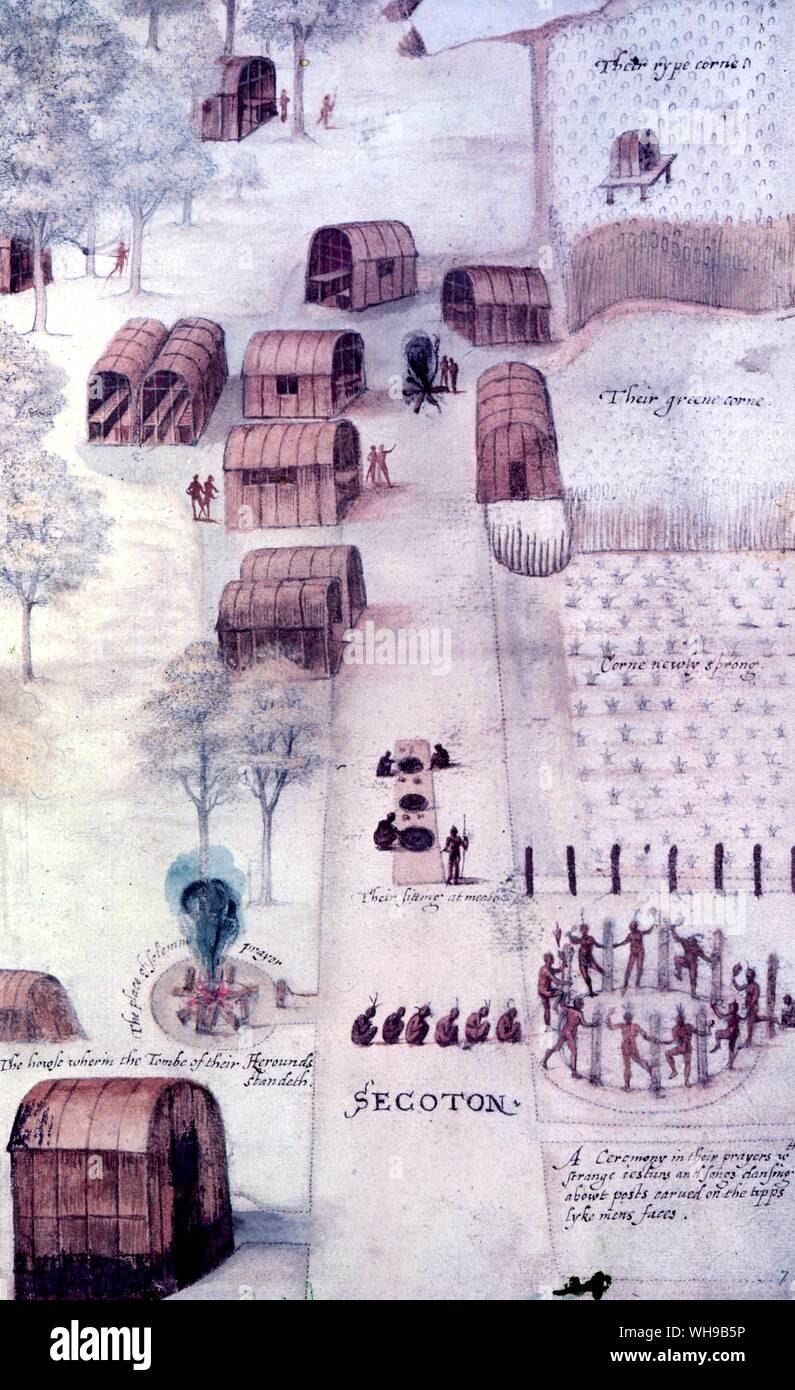 Their rype corne.
Their greene corne.
Corne newly sprong.
Their sitting at meate
The place of solemne prayer
The howse wherin the Tombe of their Herounds
standeth.
SECOTON.
A Ceremony in their prayers wth
strange iestuns and songs dansing
abowt posts carued on the topps
lyke mens faces.
7
alamy
alamy
a
a
alamy
Image ID: WH9B5P
www.alamy.com